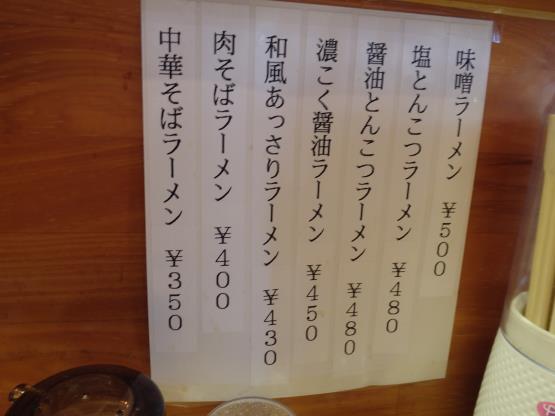 味噌ラーメン ￥500
塩とんこつラーメン ￥480
醤油とんこつラーメン ￥480
濃こく醤油ラーメン ￥450
和風あっさりラーメン ￥430
肉そばラーメン ￥400
中華そばラーメン ￥350